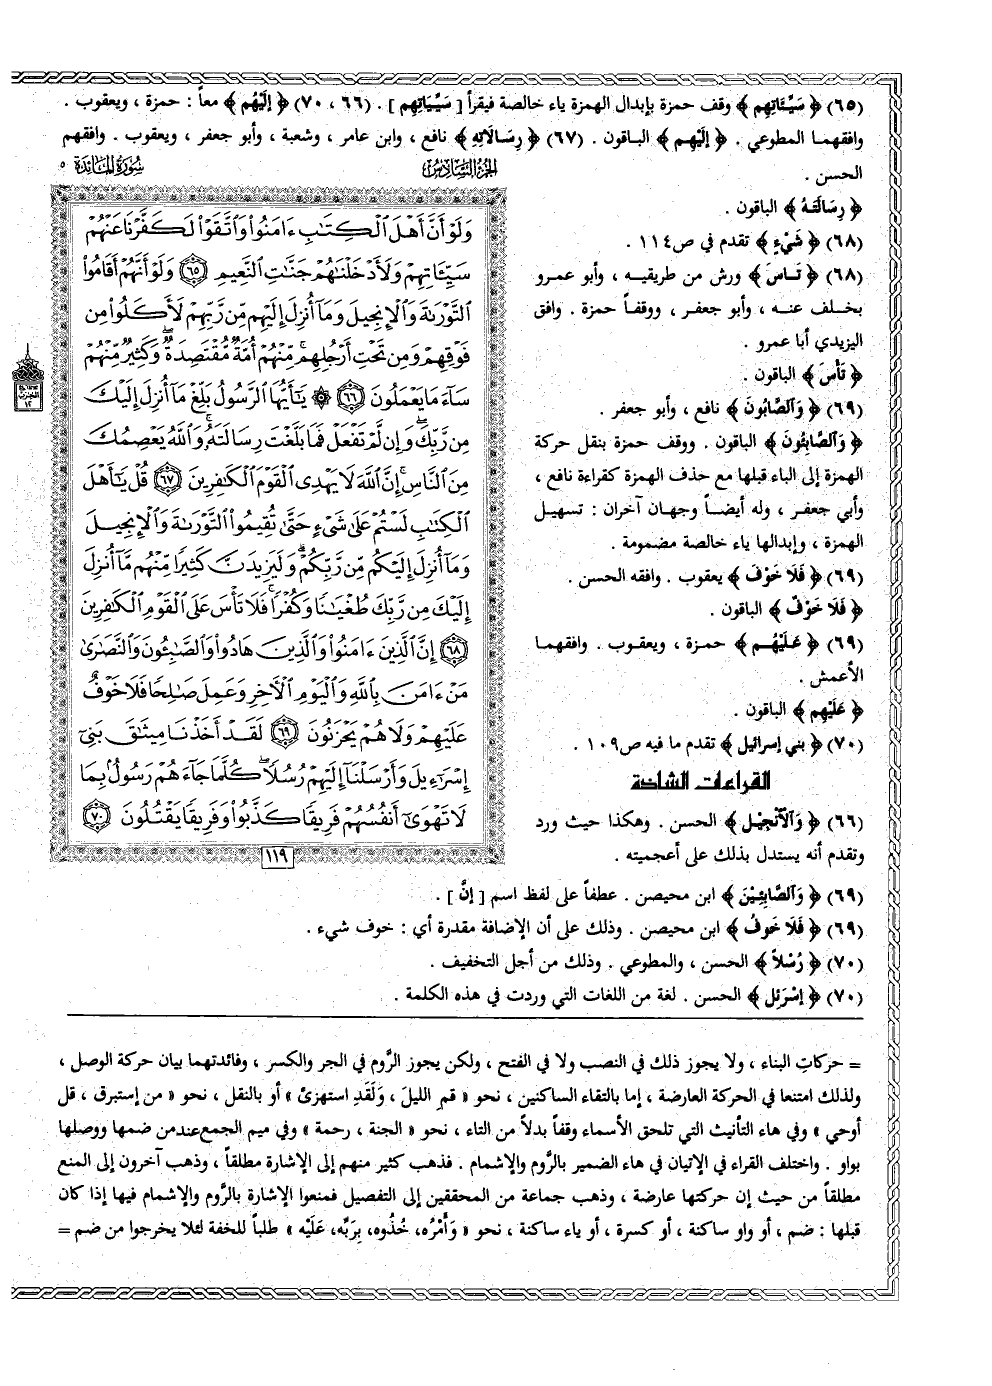 (٦٥) ﴿ سَيِّـَٔاتِهِم ﴾ وقف حمزة بإبدال الهمزة ياء خالصة فيقرأ [ سَيِّيَاتِهِم ] . (٦٦ ، ٧٠) ﴿ إِلَيْهُم ﴾ معاً : حمزة ، ويعقوب .
وافقهما المطوعي . ﴿ إِلَيْهِم ﴾ الباقون . (٦٧) ﴿ رِسَالَاتِهِ ﴾ نافع ، وابن عامر ، وشعبة ، وأبو جعفر ، ويعقوب . وافقهم
الحسن .
﴿ رِسَالَتَهُ ﴾ الباقون .
(٦٨) ﴿ شَيْءٍ ﴾ تقدم في ص١١٤ .
(٦٨) ﴿ تَاسَ ﴾ ورش من طريقيه ، وأبو عمرو
بخلف عنه ، وأبو جعفر ، ووقفاً حمزة . وافق
اليزيدي أبا عمرو .
﴿ تَأْسَ ﴾ الباقون .
(٦٩) ﴿ وَالصَّابُونَ ﴾ نافع ، وأبو جعفر .
﴿ وَالصَّابِئُونَ ﴾ الباقون . ووقف حمزة بنقل حركة
الهمزة إلى الباء قبلها مع حذف الهمزة كقراءة نافع ،
وأبي جعفر ، وله أيضـاً وجهان آخران : تسهيل
الهمزة ، وإبدالها ياء خالصة مضمومة .
(٦٩) ﴿ فَلَا خَوْفَ ﴾ يعقوب . وافقه الحسن .
﴿ فَلَا خَوْفٌ ﴾ الباقون .
(٦٩) ﴿ عَلَيْهُم ﴾ حمزة ، ويعقوب . وافقهما
الأعمش .
﴿ عَلَيْهِم ﴾ الباقون .
(٧٠) ﴿ بني إسرائيل ﴾ تقدم ما فيه ص١٠٩ .
القراءات الشاذة
(٦٦) ﴿ وَالْأَنْجِيْل ﴾ الحسن . وهكذا حيث ورد
وتقدم أنه يستدل بذلك على أعجميته .
الجزء السادس
سورة المائدة ٥
وَلَوْ أَنَّ أَهْلَ ٱلْكِتَٰبِ ءَامَنُوا۟ وَٱتَّقَوْا۟ لَكَفَّرْنَا عَنْهُمْ
سَيِّـَٔاتِهِمْ وَلَأَدْخَلْنَٰهُمْ جَنَّٰتِ ٱلنَّعِيمِ ٦٥ وَلَوْ أَنَّهُمْ أَقَامُوا۟
ٱلتَّوْرَىٰةَ وَٱلْإِنجِيلَ وَمَآ أُنزِلَ إِلَيْهِم مِّن رَّبِّهِمْ لَأَكَلُوا۟ مِن
فَوْقِهِمْ وَمِن تَحْتِ أَرْجُلِهِم ۚ مِّنْهُمْ أُمَّةٌ مُّقْتَصِدَةٌ ۖ وَكَثِيرٌ مِّنْهُمْ
سَآءَ مَا يَعْمَلُونَ ٦٦ ۞ يَٰٓأَيُّهَا ٱلرَّسُولُ بَلِّغْ مَآ أُنزِلَ إِلَيْكَ
مِن رَّبِّكَ ۖ وَإِن لَّمْ تَفْعَلْ فَمَا بَلَّغْتَ رِسَالَتَهُۥ ۚ وَٱللَّهُ يَعْصِمُكَ
مِنَ ٱلنَّاسِ ۗ إِنَّ ٱللَّهَ لَا يَهْدِى ٱلْقَوْمَ ٱلْكَٰفِرِينَ ٦٧ قُلْ يَٰٓأَهْلَ
ٱلْكِتَٰبِ لَسْتُمْ عَلَىٰ شَىْءٍ حَتَّىٰ تُقِيمُوا۟ ٱلتَّوْرَىٰةَ وَٱلْإِنجِيلَ
وَمَآ أُنزِلَ إِلَيْكُم مِّن رَّبِّكُمْ ۗ وَلَيَزِيدَنَّ كَثِيرًا مِّنْهُم مَّآ أُنزِلَ
إِلَيْكَ مِن رَّبِّكَ طُغْيَٰنًا وَكُفْرًا ۖ فَلَا تَأْسَ عَلَى ٱلْقَوْمِ ٱلْكَٰفِرِينَ
٦٨ إِنَّ ٱلَّذِينَ ءَامَنُوا۟ وَٱلَّذِينَ هَادُوا۟ وَٱلصَّٰبِـُٔونَ وَٱلنَّصَٰرَىٰ
مَنْ ءَامَنَ بِٱللَّهِ وَٱلْيَوْمِ ٱلْـَٔاخِرِ وَعَمِلَ صَٰلِحًا فَلَا خَوْفٌ
عَلَيْهِمْ وَلَا هُمْ يَحْزَنُونَ ٦٩ لَقَدْ أَخَذْنَا مِيثَٰقَ بَنِىٓ
إِسْرَٰٓءِيلَ وَأَرْسَلْنَآ إِلَيْهِمْ رُسُلًا ۖ كُلَّمَا جَآءَهُمْ رَسُولٌۢ بِمَا
لَا تَهْوَىٰٓ أَنفُسُهُمْ فَرِيقًا كَذَّبُوا۟ وَفَرِيقًا يَقْتُلُونَ ٧٠
١١٩
(٦٩) ﴿ وَالصَّابِئِيْنَ ﴾ ابن محيصن . عطفاً على لفظ اسم [ إنَّ ] .
(٦٩) ﴿ فَلَا خَوفُ ﴾ ابن محيصن . وذلك على أن الإضافة مقدرة أي : خوف شيء .
(٧٠) ﴿ رُسْلاً ﴾ الحسن ، والمطوعي . وذلك من أجل التخفيف .
(٧٠) ﴿ إِسْرَئِل ﴾ الحسن . لغة من اللغات التي وردت في هذه الكلمة .
= حركاتِ البناء ، ولا يجوز ذلك في النصب ولا في الفتح ، ولكن يجوز الرَّوم في الجر والكسر ، وفائدتهما بيان حركة الوصل ،
ولذلك امتنعا في الحركة العارضة ، إما بالتقاء الساكنين ، نحو « قم الليلَ ، وَلَقَدِ استهزئ » أو بالنقل ، نحو « من إستبرق ، قل
أوحي » وفي هاء التأنيث التي تلحق الأسماء وقفاً بدلاً من التاء ، نحو « الجنة ، رحمة » وفي ميم الجمع عند من ضمها ووصلها
بواو . واختلف القراء في الإتيان في هاء الضمير بالرَّوم والإشمام . فذهب كثير منهم إلى الإشارة مطلقاً ، وذهب آخرون إلى المنع
مطلقاً من حيث إن حركتها عارضة ، وذهب جماعة من المحققين إلى التفصيل فمنعوا الإشارة بالرَّوم والإشمام فيها إذا كان
قبلها : ضم ، أو واو ساكنة ، أو كسرة ، أو ياء ساكنة ، نحو « وَأَمْرُه، خُذُوه، بِرَبِّه، عَلَيْه » طلباً للخفة لئلا يخرجوا من ضم =